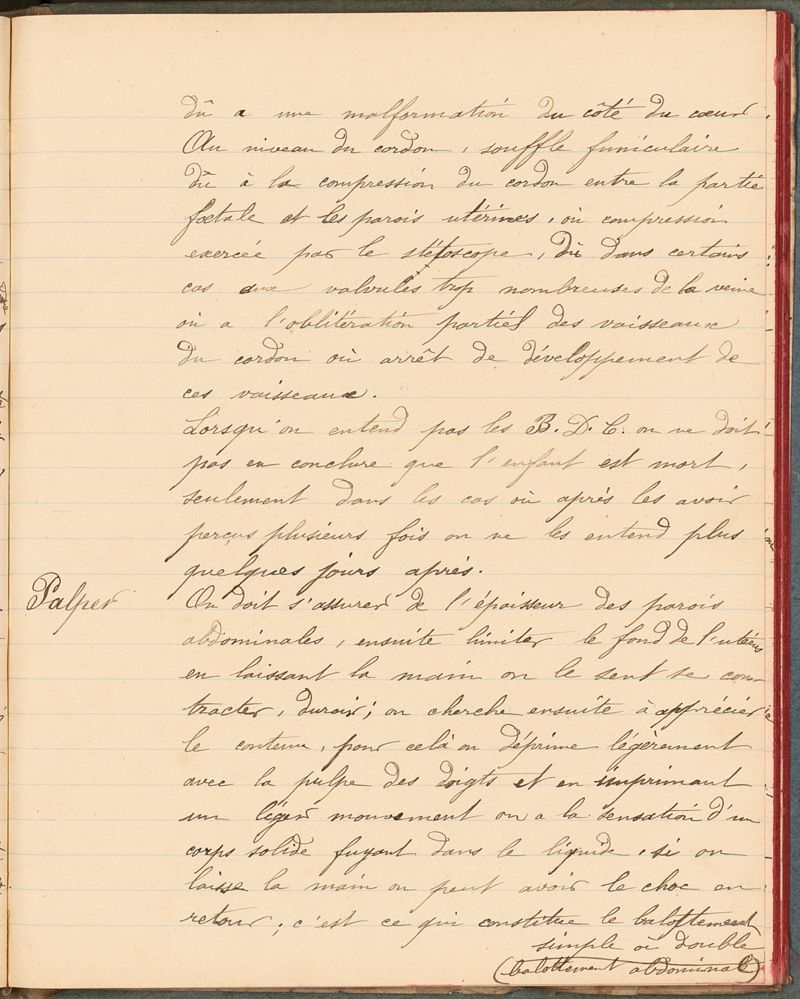 dû a une malformation du côté du cœur.
Au niveau du cordon, souffle funiculaire
dû à la compression du cordon entre la partie
fœtale et les parois utérines, où compression
exercée par le stétoscope, dû dans certains
cas aux valvules trop nombreuses de la veine
où a l'oblitération partiel des vaisseaux
du cordon où arrêt de développement de
ces vaisseaux.
Lorsqu'on entend pas les B. D. C. on ne doit
pas en conclure que l'enfant est mort,
seulement dans les cas où après les avoir
perçus plusieurs fois on ne les entend plus
quelques jours après.
Palper
On doit s'assurer de l'épaisseur des parois
abdominales, ensuite limiter le fond de l'utérus
en laissant la main on le sent se con-
tracter, durcir; on cherche ensuite à apprécier
le contenu, pour celà on déprime légèrement
avec la pulpe des doigts et en imprimant
un léger mouvement on a la sensation d'un
corps solide fuyant dans le liquide, si on
laisse la main on peut avoir le choc en
retour; c'est ce qui constitue le balottement
simple où double
(balottement abdominal)